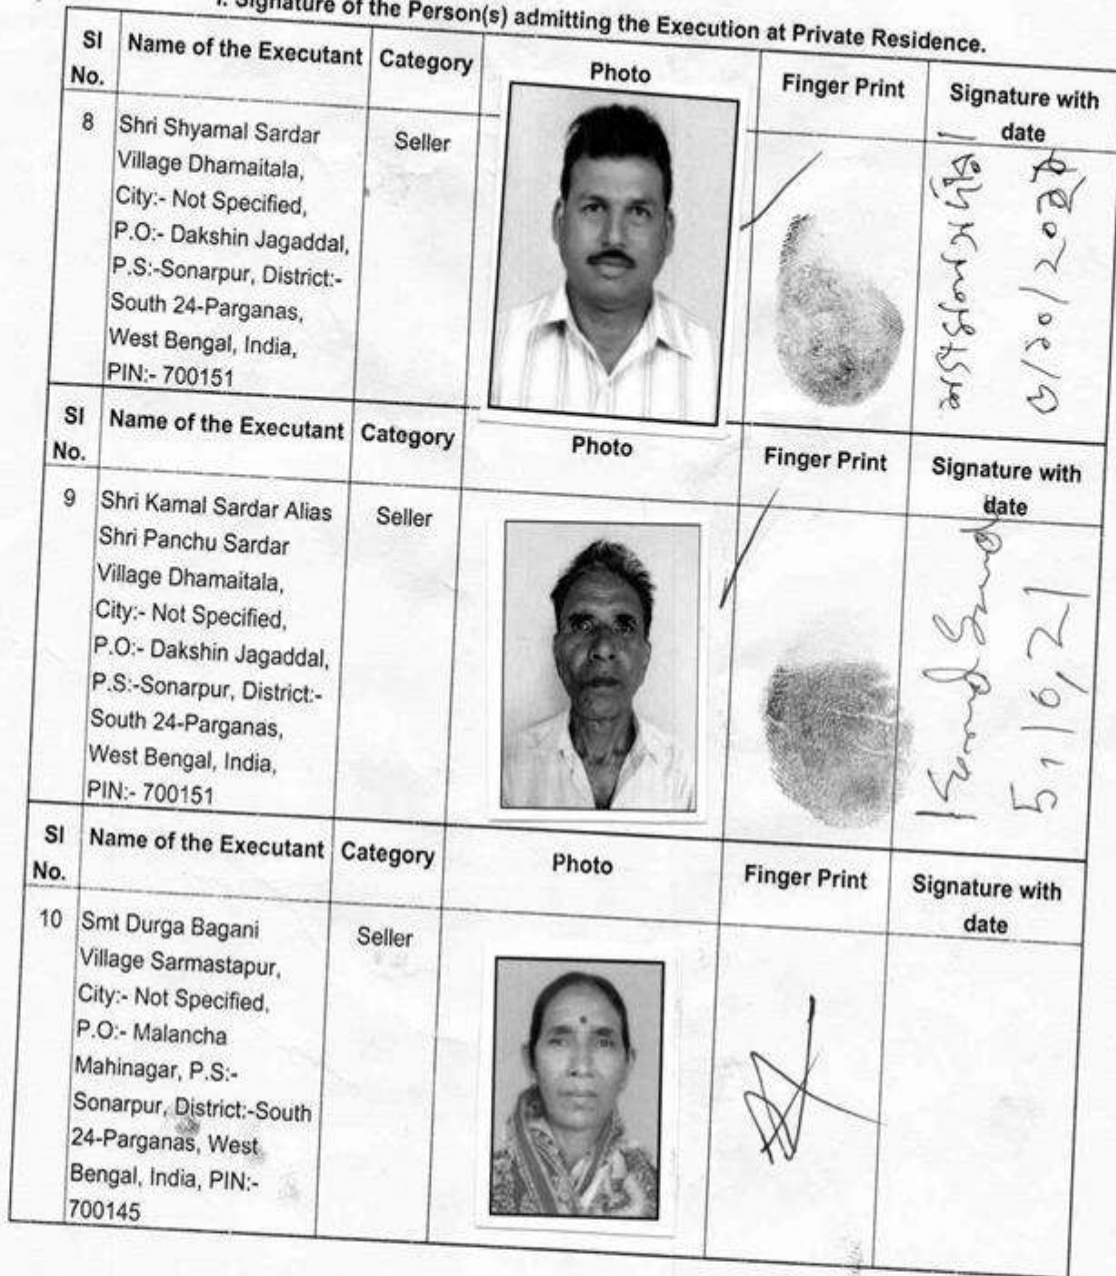 I. Signature of the Person(s) admitting the Execution at Private Residence.
Sl No. Name of the Executant Category Photo Finger Print Signature with date
8 Shri Shyamal Sardar Seller
Village Dhamaitala,
City:- Not Specified,
P.O:- Dakshin Jagaddal,
P.S:-Sonarpur, District:-
South 24-Parganas,
West Bengal, India,
PIN:- 700151
Sl No. Name of the Executant Category Photo Finger Print Signature with date
9 Shri Kamal Sardar Alias Seller
Shri Panchu Sardar
Village Dhamaitala,
City:- Not Specified,
P.O:- Dakshin Jagaddal,
P.S:-Sonarpur, District:-
South 24-Parganas,
West Bengal, India,
PIN:- 700151
Sl No. Name of the Executant Category Photo Finger Print Signature with date
10 Smt Durga Bagani Seller
Village Sarmastapur,
City:- Not Specified,
P.O:- Malancha
Mahinagar, P.S:-
Sonarpur, District:-South
24-Parganas, West
Bengal, India, PIN:-
700145